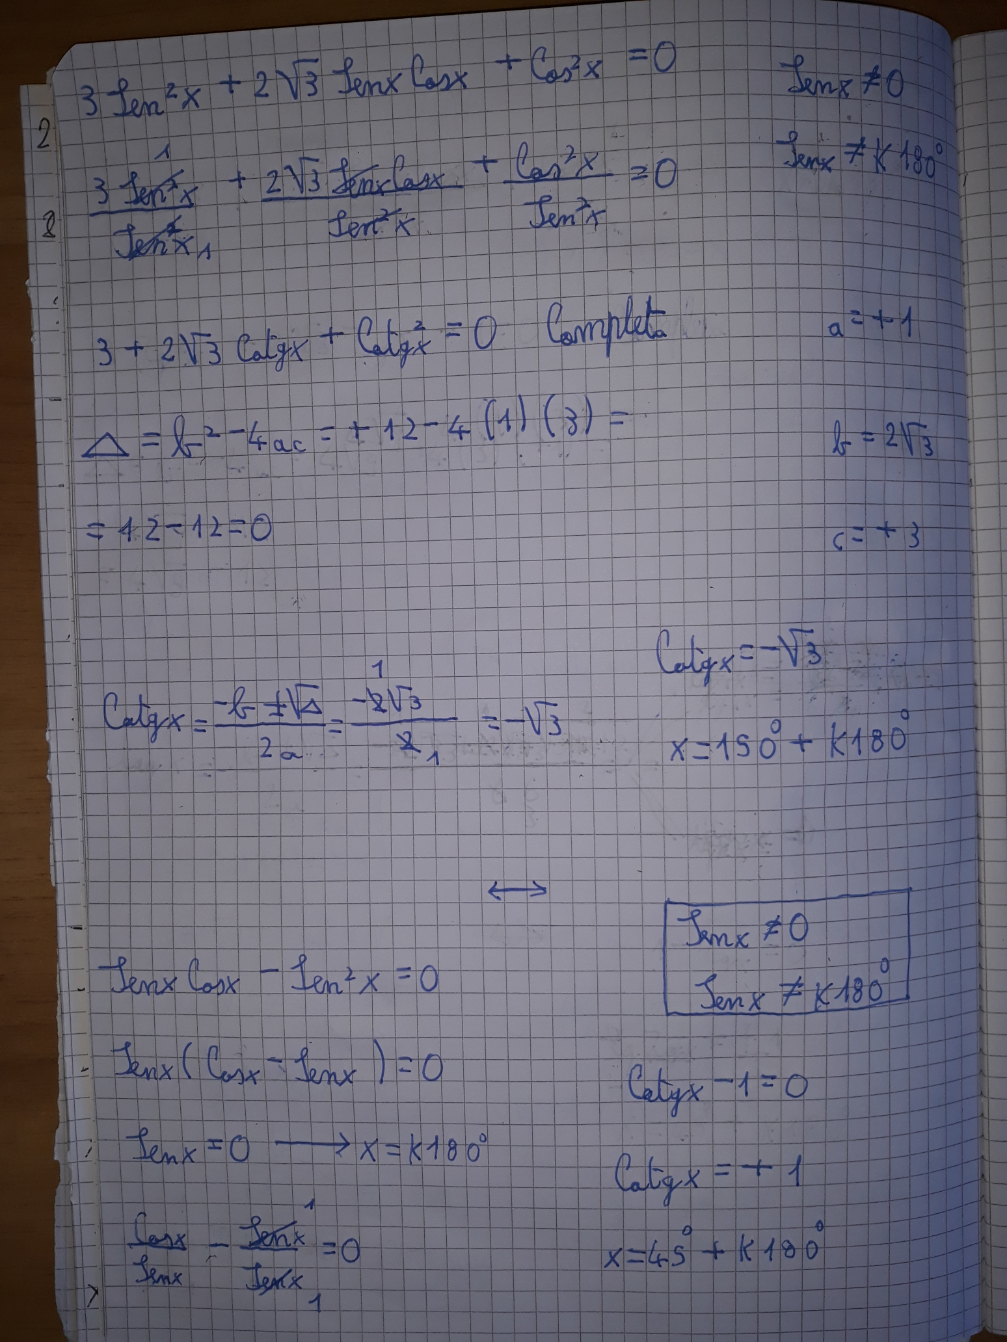 3 Sen²x + 2√3 Senx Cosx + Cos²x = 0
Senx ≠ 0
2
3 Sen²x / Sen²x + 2√3 Senx Cosx / Sen²x + Cos²x / Sen²x = 0
1
1
Senx ≠ K180°
8
3 + 2√3 Cotgx + Cotg²x = 0 Completa
a = +1
Δ = b² - 4ac = +12 - 4(1)(3) =
b = 2√3
= 12 - 12 = 0
c = +3
Cotgx = -√3
Cotgx = -b ± √Δ / 2a = -2√3 / 2 = -√3
1
1
x = 150° + K180°
↔
Senx ≠ 0
Senx Cosx - Sen²x = 0
Senx ≠ K180°
Senx (Cosx - Senx) = 0
Cotgx - 1 = 0
Senx = 0 → x = K180°
Cotgx = +1
Cosx / Senx - Senx / Senx = 0
1
1
x = 45° + K180°